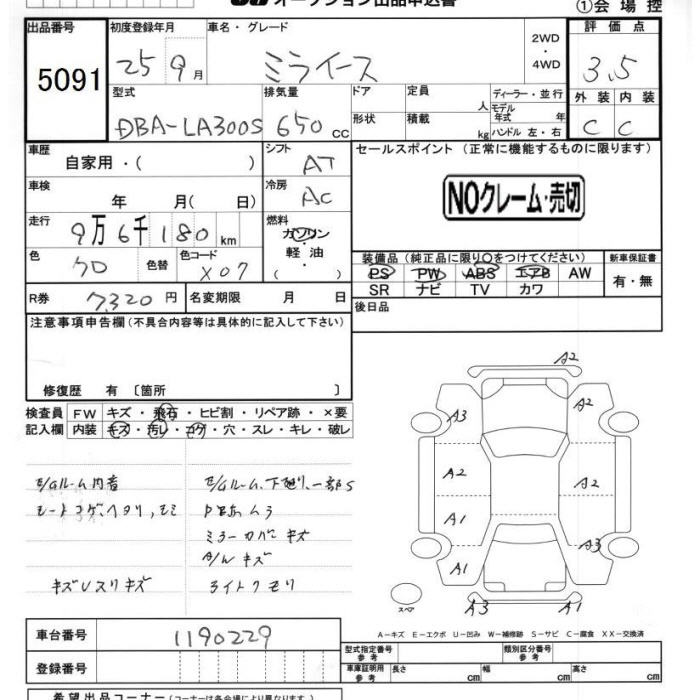 オークション出品申込書
①会場控
出品番号
5091
初度登録年月
25 9月
車名・グレード
ミライース
2WD
・
4WD
評価点
3.5
型式
DBA-LA300S
排気量
650 cc
ドア
形状
定員
人
積載
kg
ディーラー・並行
モデル
年式 年
ハンドル 左・右
外装
C
内装
C
車歴
自家用・( )
シフト
AT
セールスポイント (正常に機能するものに限ります)
NOクレーム・売切
車検
年 月( 日)
冷房
AC
走行
9万6千180km
燃料
ガソリン
・
軽油
( )
色
クロ
色替
色コード
X07
装備品 (純正品に限り○をつけてください)
新車保証書
PS PW ABS エアB AW
有・無
SR ナビ TV カワ
R券
7,320円
名変期限 月 日
後日品
注意事項申告欄 (不具合内容等は具体的に記入して下さい)
修復歴 有 〔箇所 〕
検査員
記入欄
FW キズ・飛石・ヒビ割・リペア跡・×要
内装 キズ・汚レ・コゲ・穴・スレ・キレ・破レ
E/Gルーム内
シートコゲ、ヘタリ、
キズUスリキズ
E/Gルーム、下廻り、一部S
ムラ
ミラーカバーキズ
A/Wキズ
ライトクモリ
A2
A3
A2
A2
A2
A1
A3
A1
A3
A1
スペア
A-キズ E-エクボ U-凹み W-補修跡 S-サビ C-腐食 XX-交換済
車台番号
1190229
登録番号
型式指定番号
参考
類別区分番号
参考
車庫証明用
参考
長さ cm
幅 cm
高さ cm
希望出品コーナー (コーナーは各会場により異なります。)